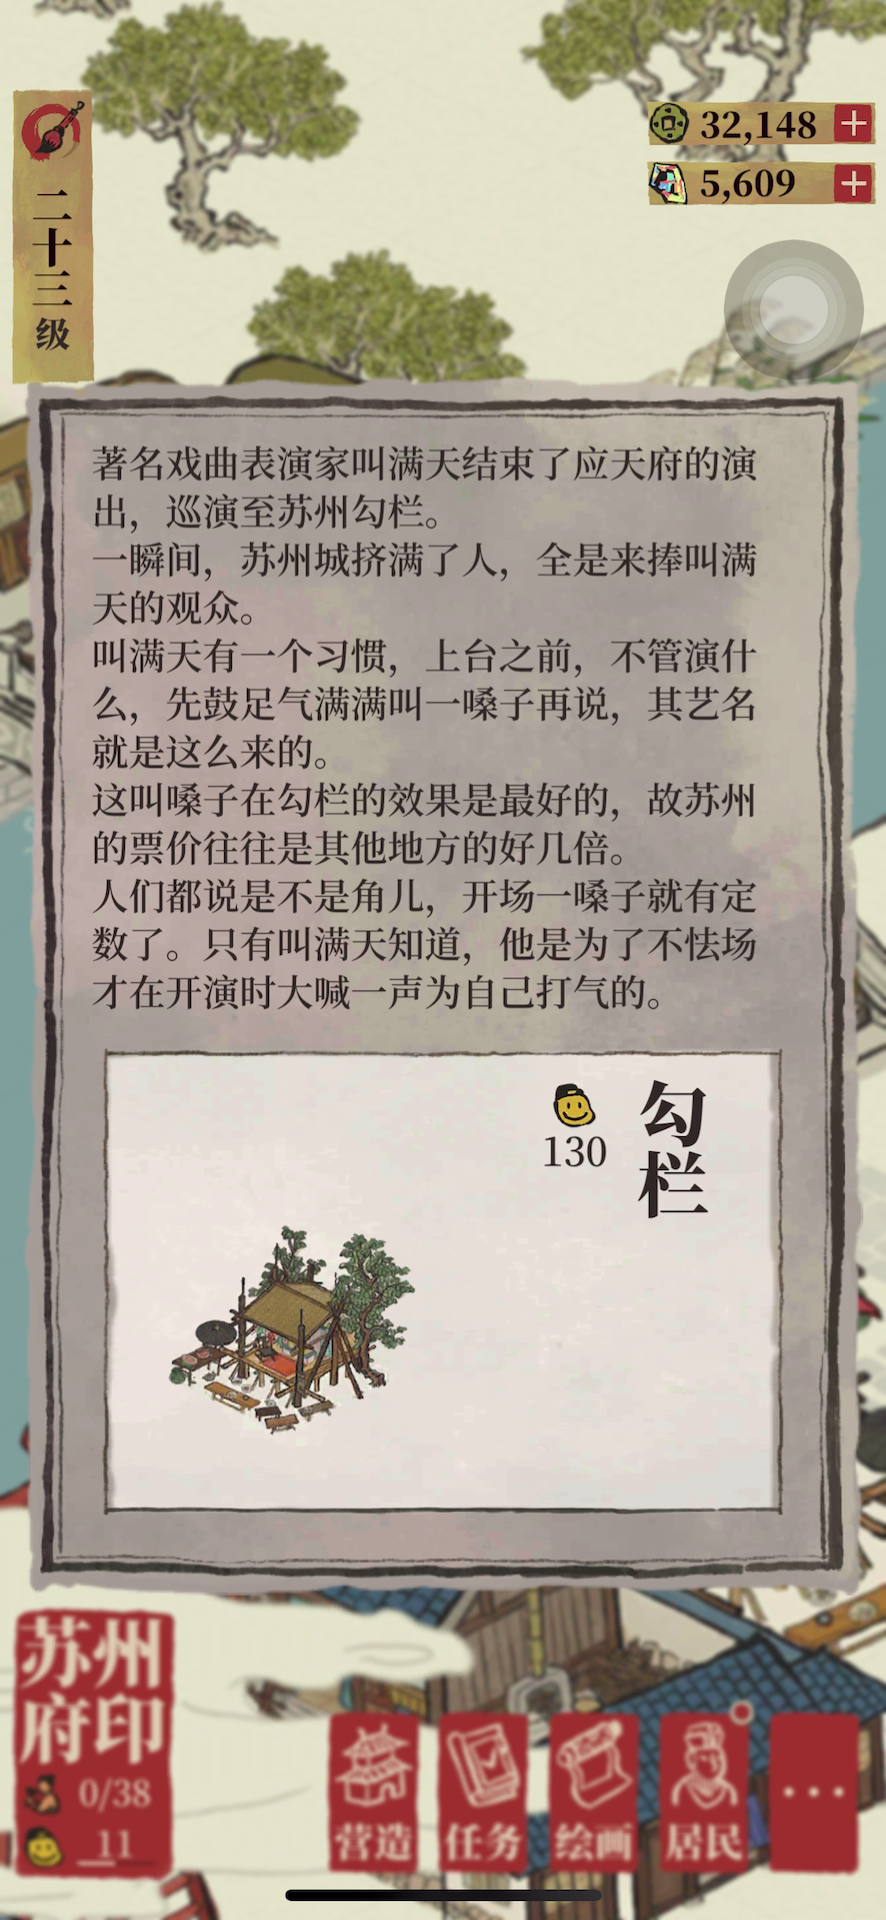 二十三级
32,148
5,609
著名戏曲表演家叫满天结束了应天府的演
出，巡演至苏州勾栏。
一瞬间，苏州城挤满了人，全是来捧叫满
天的观众。
叫满天有一个习惯，上台之前，不管演什
么，先鼓足气满满叫一嗓子再说，其艺名
就是这么来的。
这叫嗓子在勾栏的效果是最好的，故苏州
的票价往往是其他地方的好几倍。
人们都说是不是角儿，开场一嗓子就有定
数了。只有叫满天知道，他是为了不怯场
才在开演时大喊一声为自己打气的。
勾栏
130
苏州
府印
0/38
11
营造
任务
绘画
居民